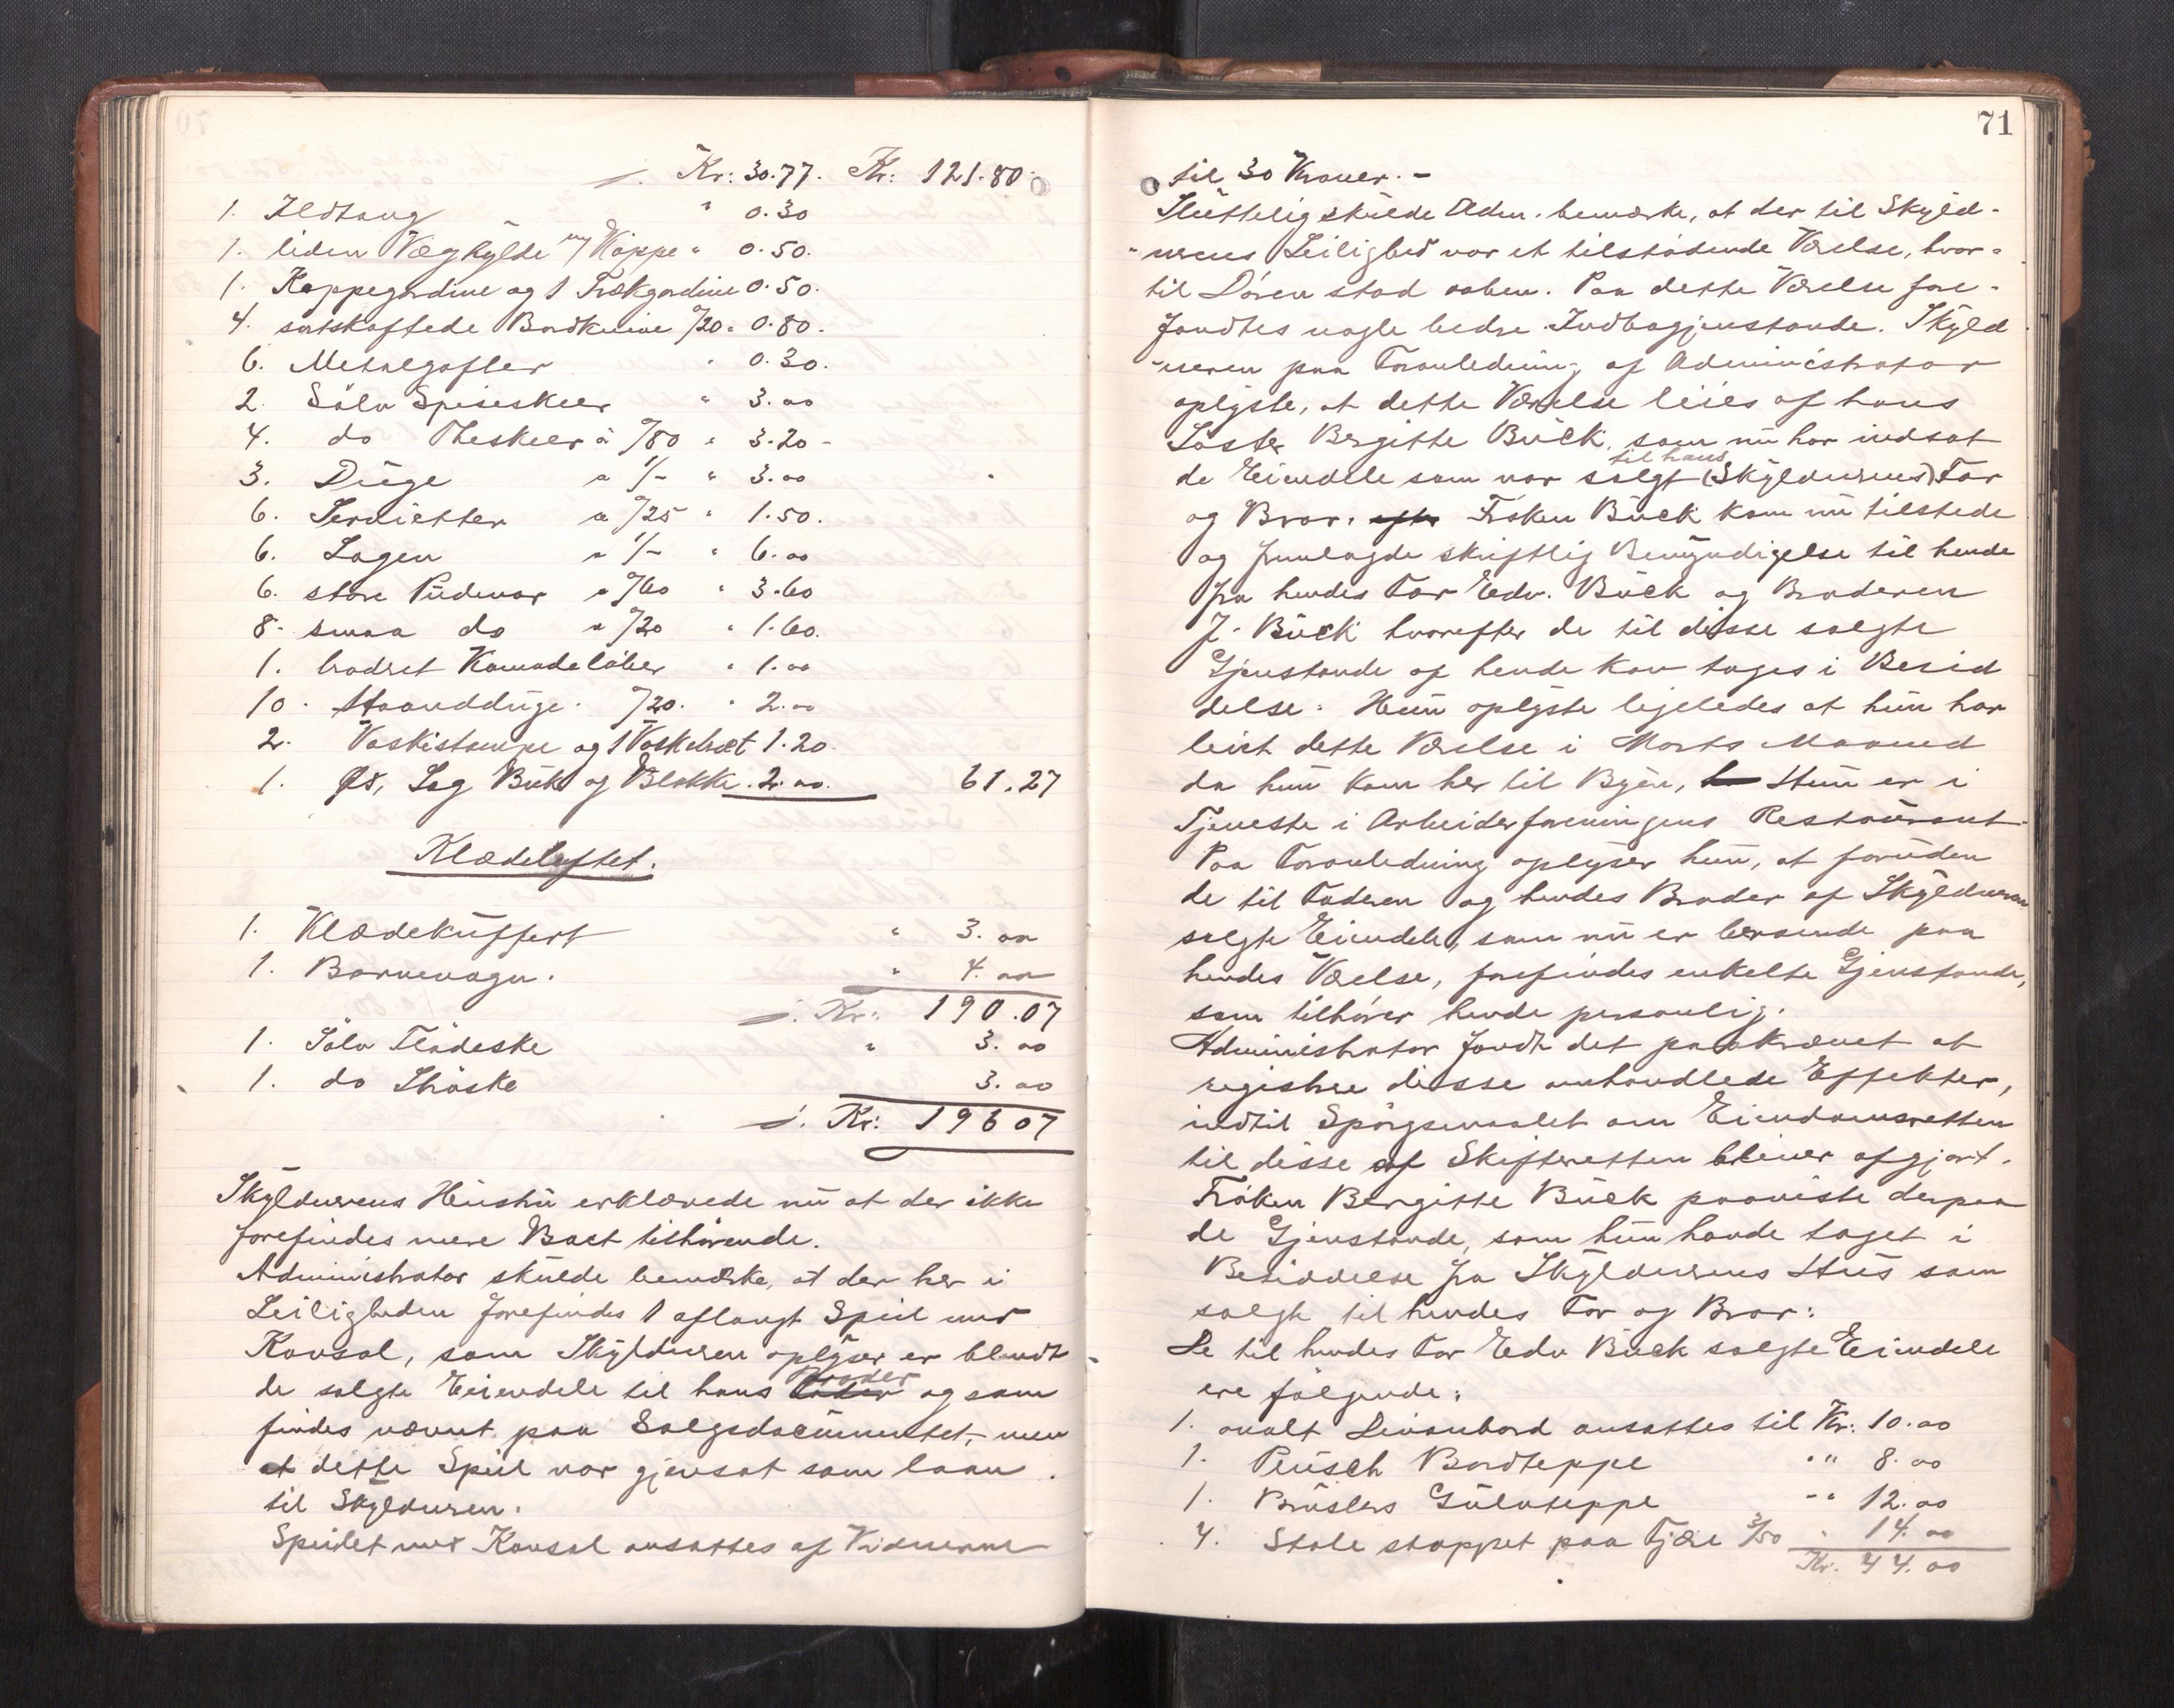 ÷. Kr: 30.77. Kr: 121.80.
1. Ildtang " 0.30
1. liden Væghylde m/ Kappe " 0.50.
1. Kappegardine og 1 Trækgardine 0.50.
4. sortskaftede Bordknive a/20 " 0.80.
6. Metalgafler " 0.30.
2. Sölv Spiseskeer " 3.00
4. do Theskeer à /80 " 3.20-
3. Duge a 1/- " 3.00
6. Servietter a /25 " 1.50.
6. Lagen a 1/- " 6.00
6. store Pudevar a /60 " 3.60
8. smaa do a /20 " 1.60.
1. brodret Komodelöber " 1.00
10. Haandduge. /20. " 2.00
2. Vaskestampe og 1 Vaskebræt 1.20.
1. Øx, Sag Buk og Blokke. 2.00. 61.27
Klædeloftet.
1. Klædekuffert " 3.00
1. Barnevogn. " 4.00
÷. Kr: 190.07
1. Sölv Flödeske " 3.00
1. do Ströske 3.00
÷. Kr: 196 07
Skyldnerens Hustru erklærede nu at der ikke
forefindes mere Boet tilhörende.
Administrator skulde bemærke, at der her i
Leiligheden forefindes 1 aflangt Speil med
Konsol, som Skyldneren oplyser er blandt
de solgte Eiendele til hans Broder og som
findes nævnt paa Salgsdocumentet, men
at dette Speil var gjensat som laan
til Skyldneren.
Speilet med Konsol ansattes af Vidnerne
71
til 30 Kroner. -
Sluttelig skulde Adm. bemærke, at der til Skyld-
-nerens Leilighed var et tilstödende Værelse, hvor-
til Dören stod aaben. Paa dette Værelse fore-
fandtes nogle bedre Indbogjenstande. Skyld
-neren paa Foranledning af Administrator
oplyste, at dette Værelse leies af hans
Söster Bergitte Buck, som nu har indsat
de Eiendele som var solgt til hans (Skyldnerens) Far
og Bror. Fröken Buck kom nu tilstede
og fremlagde skriftlig Bemyndigelse til hende
fra hendes Far Edv. Buck og Broderen
J. Buck hvorefter de til disse solgte
Gjenstande af hende kan tages i Besid
delse. Hun oplyste ligeledes at hun har
leiet dette Værelse i Marts Maaned
da hun kom her til Byen, Hun er i
Tjeneste i Arbeiderforeningens Restaurant.
Paa Foranledning oplyser hun, at foruden
de til Faderen og hendes Broder af Skyldneren
solgte Eiendele, som nu er beroende paa
hendes Værelse, forefindes enkelte Gjenstande,
som tilhörer hende personlig.
Administrator fandt det paakrævet at
registrere disse omhandlede Effekter,
indtil Spörgsmaalet om Eiendomsretten
til disse af Skifteretten bliver afgjort.
Fröken Bergitte Buck paaviste derpaa
de Gjenstande, som hun havde taget i
Besiddelse fra Skyldnerens Hus som
solgte til hendes Far og Bror:
De til hendes Far Edv Buck solgte Eiendele
ere fölgende:
1. ovalt Divanbord ansattes til Kr: 10.00
1. Plüsch Bordteppe " " 8.00
1. Brüslers Gulvteppe - " 12.00
4. Stole stoppet paa Fjær 3/50 " 14.00
Kr. 44.00